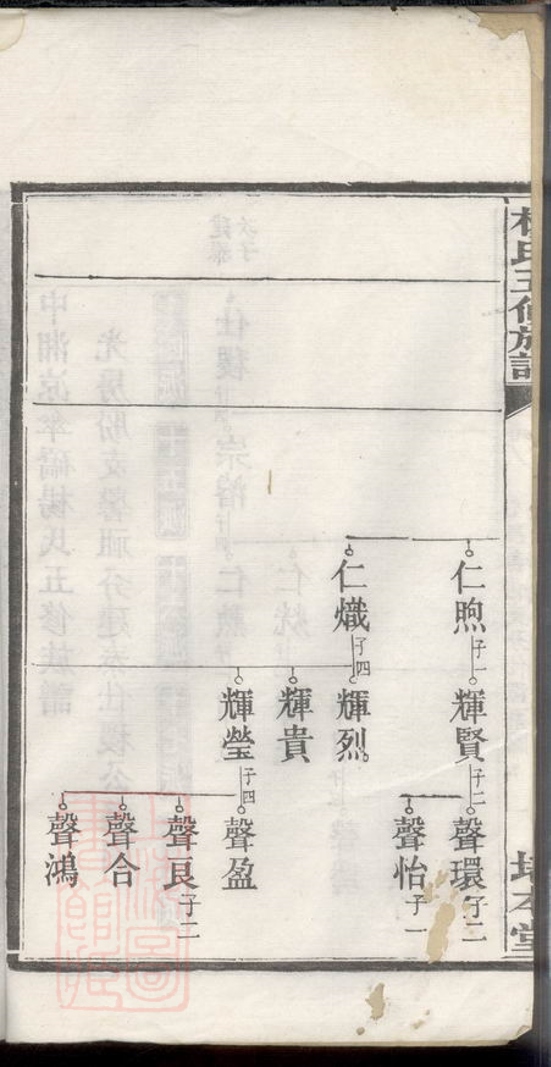 楊氏五修族譜
仁煦
子一
輝賢
子二
聲環
子二
聲怡
子一
仁熾
子四
輝烈
輝貴
輝瑩
子四
聲盈
聲良
子二
聲合
聲鴻